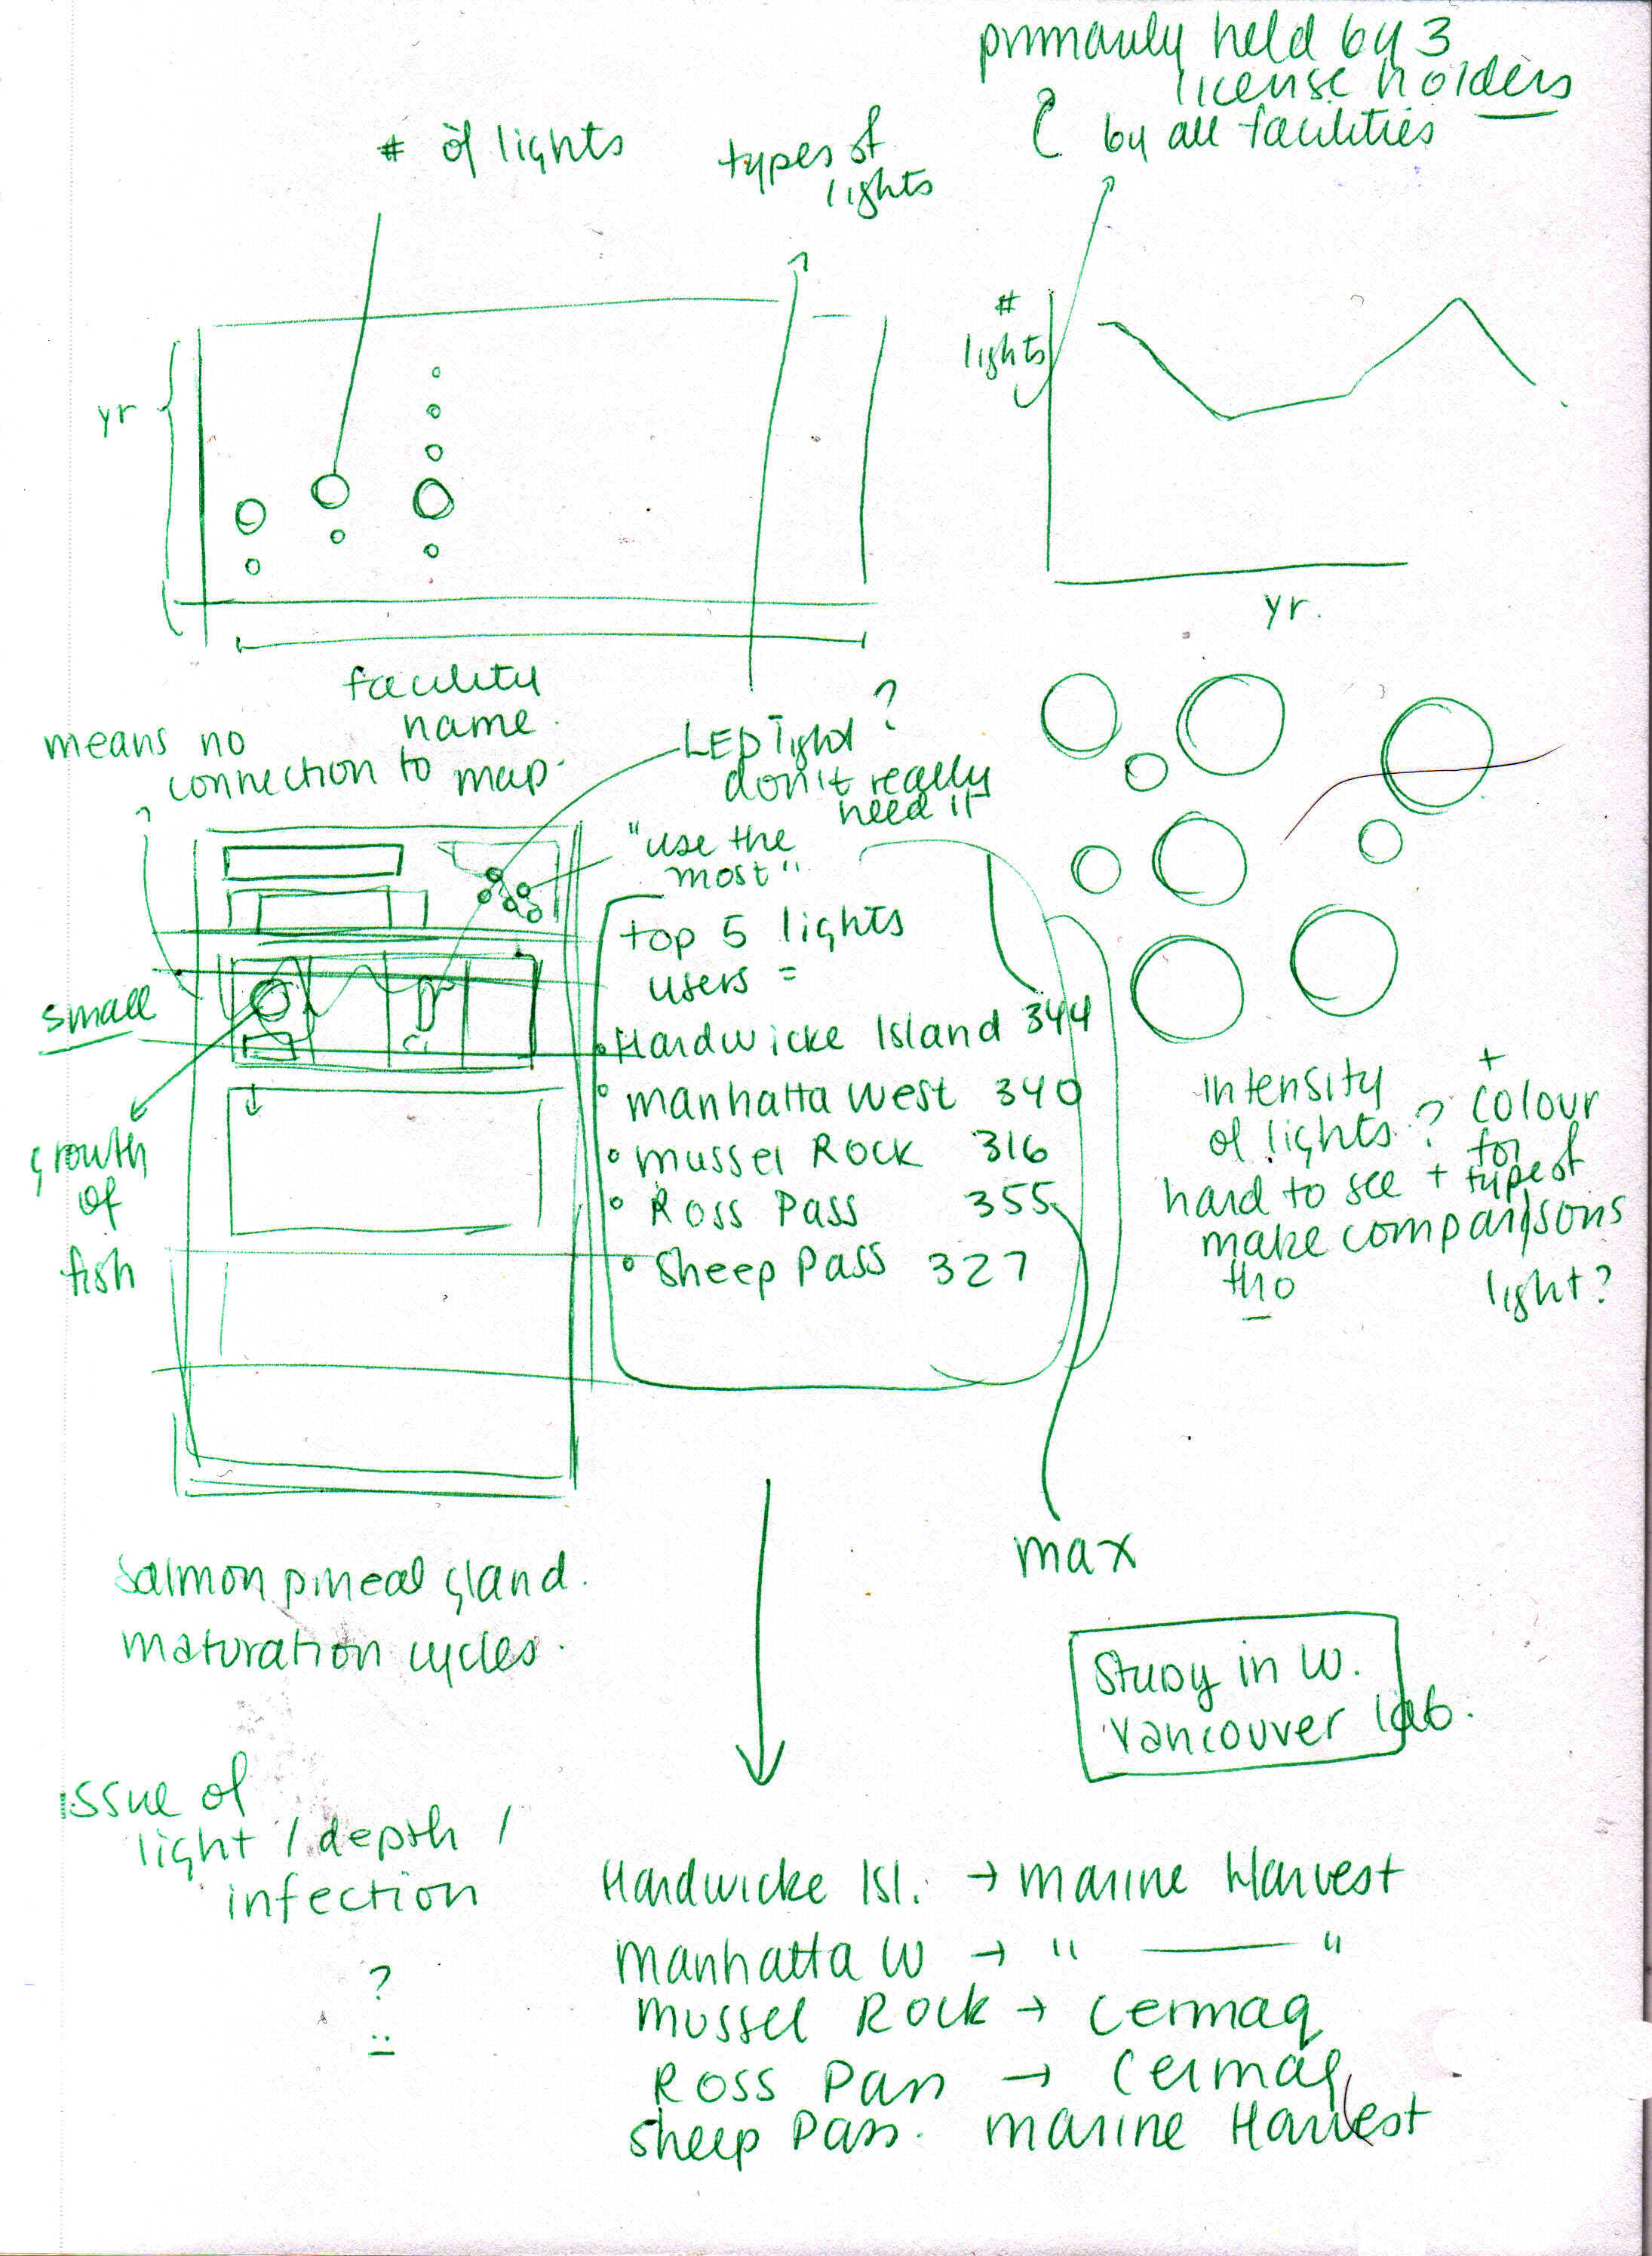 primarily held by 3
license holders
by all facilities
# of lights
types of
lights
#
lights
yr
yr.
facility
name.
means no
connection to map.
LED light ?
don't really
need it
"use the
most"
top 5 lights
users =
small
Hardwicke Island 344
Manhatta West 340
Mussel Rock 316
Ross Pass 355
Sheep Pass 327
growth
of
fish
intensity
of lights ?
hard to see +
make comparisons
tho
+
colour
for
types of
light?
max
salmon pineal gland.
maturation cycles.
Study in W.
Vancouver lab.
issue of
light / depth /
infection
?
Hardwicke Isl. → Marine Harvest
Manhatta W → " — "
Mussel Rock → Cermaq
Ross Pass → Cermaq
Sheep Pass. Marine Harvest